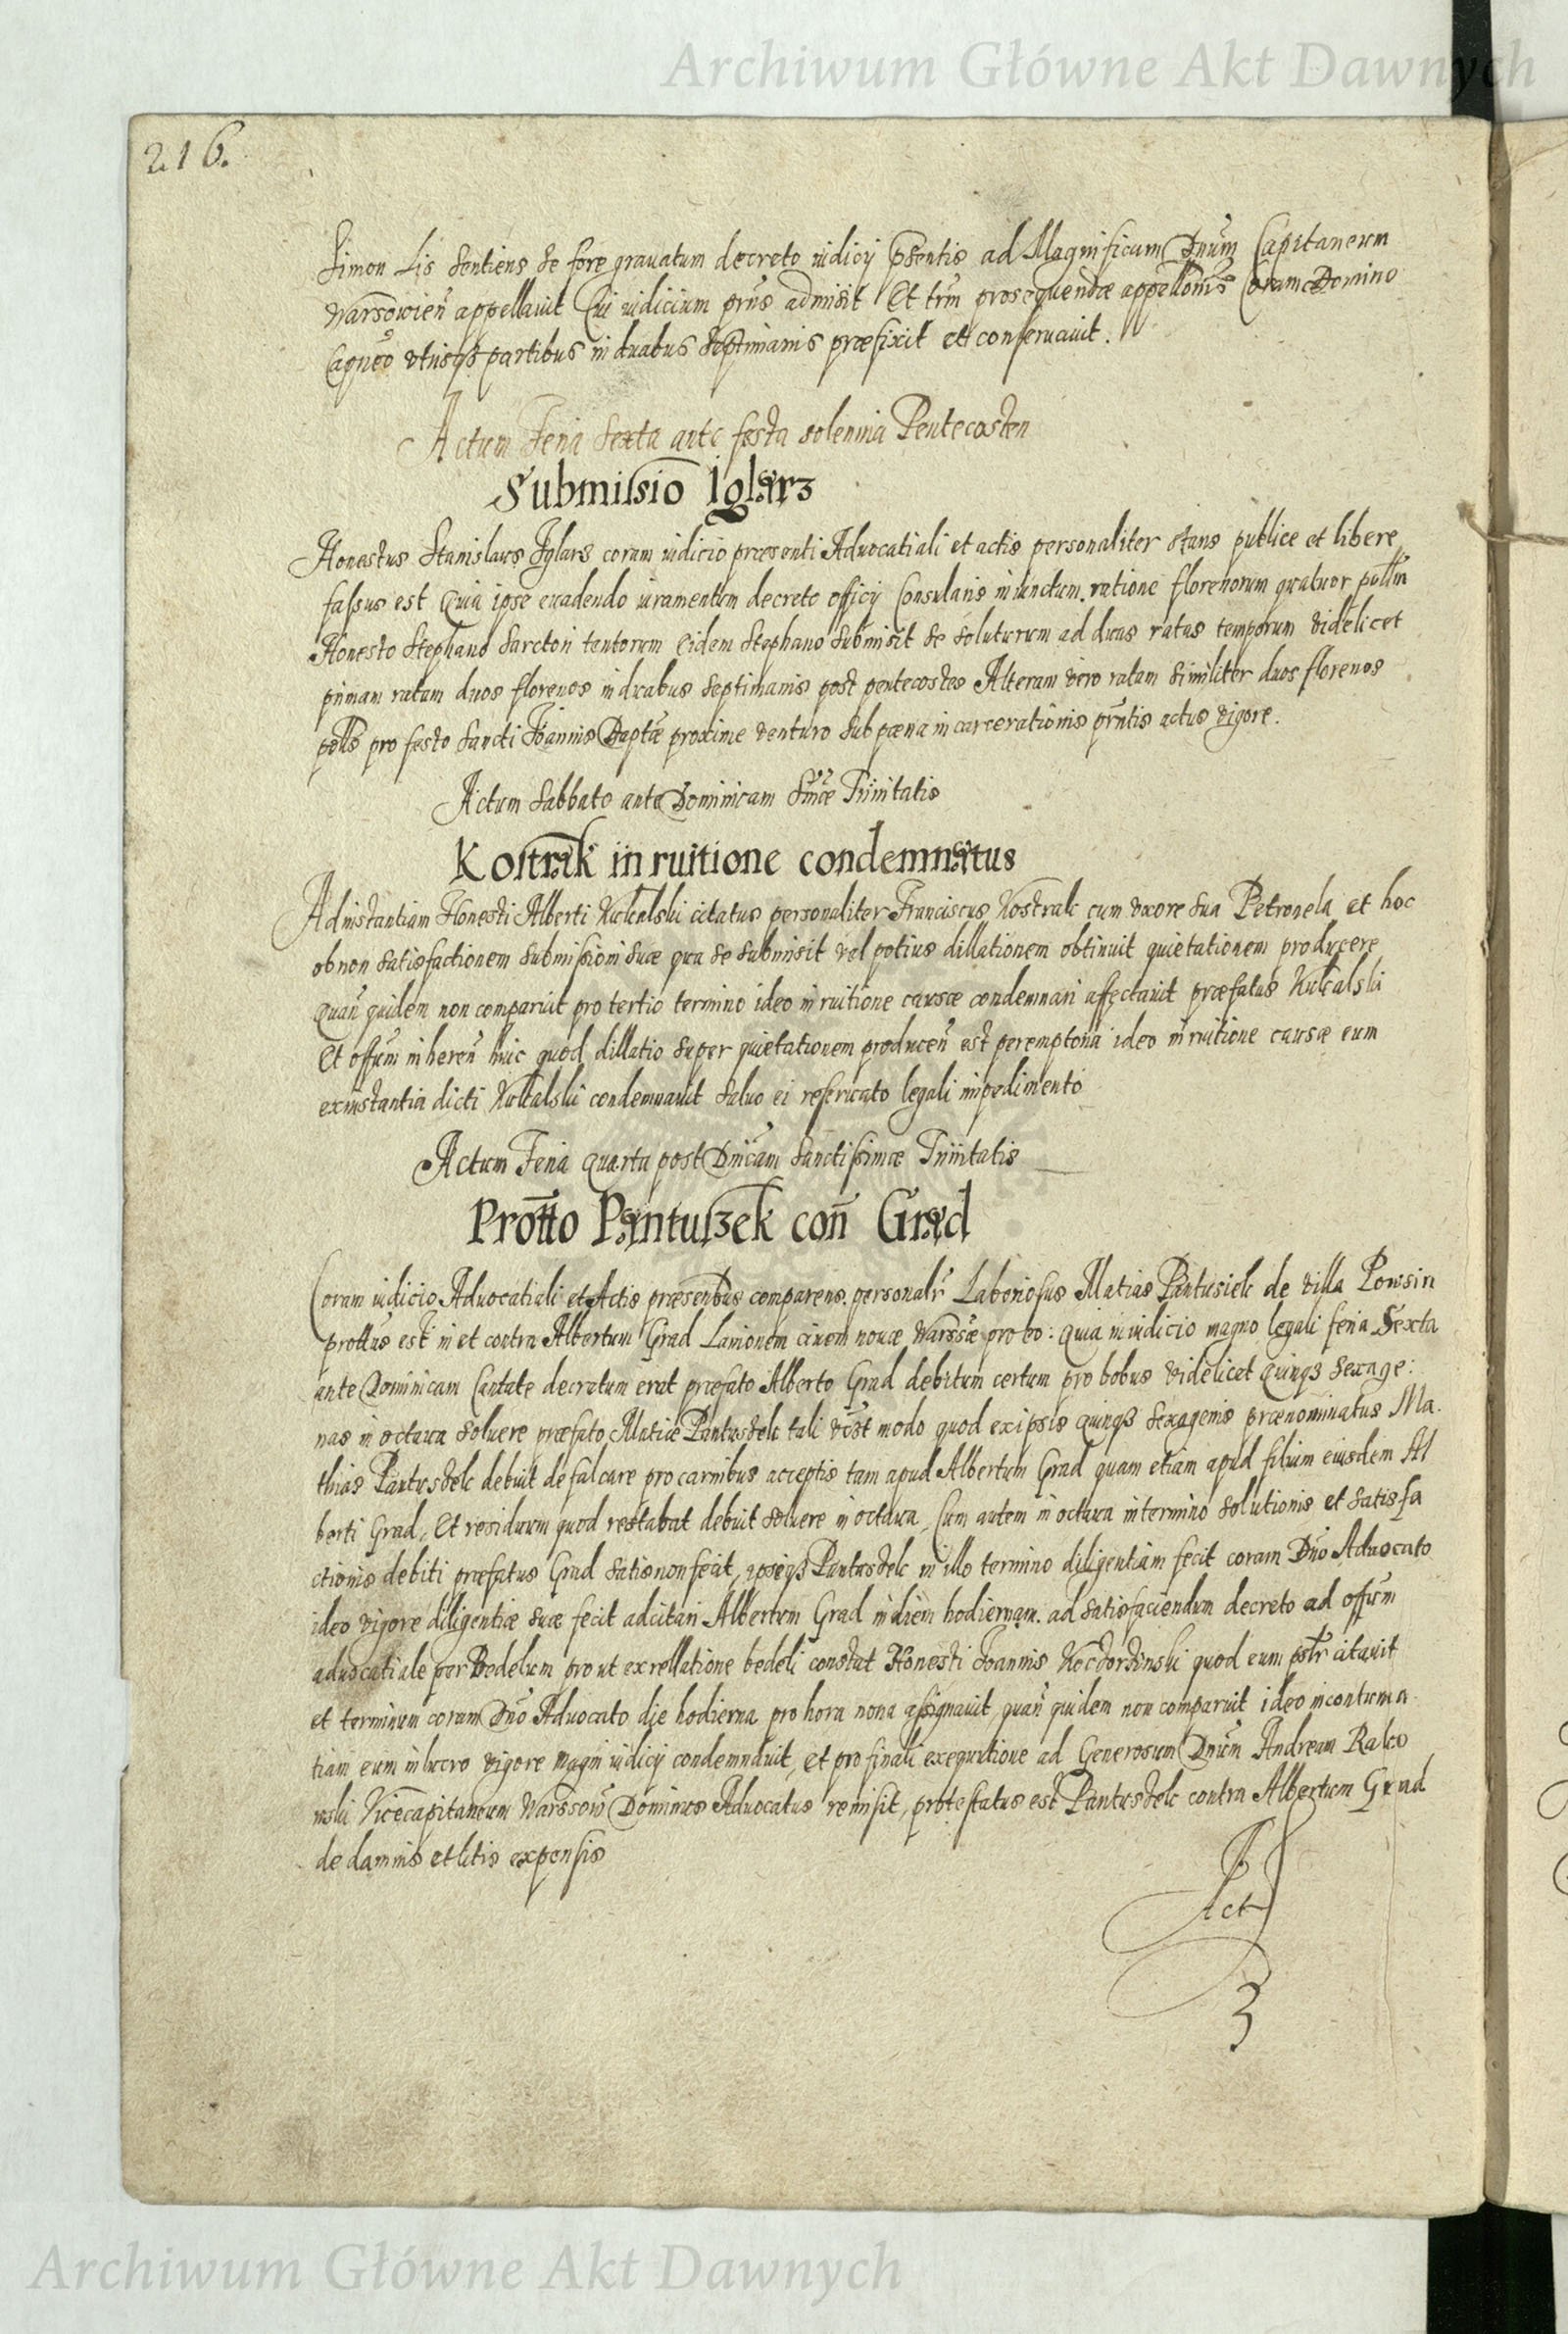 Archiwum Główne Akt Dawnych
216.
Simon Lis sentiens se fore gravatum decreto iudicij pñtentis ad Magnificum Dnum Capitaneum
Warsovień appellavit Cui iudicium prius admisit Et trm prosequendæ appellonis Coram Domino
Capneo utrisqʒ partibus in duabus septimanis præfixit et conservavit.
Actum Feria Sexta ante festa solennia Pentecosten
Submissio Iglarz
Honestus Stanislaus Iglars coram iudicio præsenti Advocatiali et actis personaliter stans publice et libere
fassus est Quia ipse evadendo iuramentum decreto officij Consularis iniunctum ratione florenorum quatuor pollm
Honesto Stephano Sarctori tentorum eidem Stephano submisit se soluturum ad duas ratas temporum videlicet
primam ratam duos florenos in duabus septimanis post pentecostes Alteram vero ratam similiter duos florenos
polls pro festo Sancti Joannis Baptæ proxime venturo sub pæna incarcerationis prntis actus vigore.
Actum Sabbato ante Dominicam Smæ Trinitatis
Kostrak in ruitione condemnatus
Ad instantiam Honesti Alberti Kukalski citatus personaliter Franciscus Kostrak cum uxore sua Petronela et hoc
ob non satisfactionem submissioni suæ qua se submisit vel potius dillationem obtinuit quietationem producere
Quań quidem non comparuit pro tertio termino ideo in ruitione causæ condemnari affectavit præfatus Kukalski
Et offum inhereń huic quod dillatio super quietationem produceń est peremptoria ideo in ruitione causæ eum
ex instantia dicti Kukalski condemnavit salvo ei reservato legali impedimento
Actum Feria Quarta post Dnicam Sanctissimæ Trinitatis
Protto Pantuszek coñ Grad
Coram iudicio Advocatiali et Actis præsentibus comparens personalr Laboriosus Matias Pantusiek de villa Powsin
prottus est in et contra Albertum Grad Lanionem civem novæ Warssæ pro eo: quia in iudicio magno legali feria Sexta
ante Dominicam Cantate decretum erat præfato Alberto Grad debitum certum pro bobus videlicet quinqʒ sexage:
nas in octava solvere præfato Matiæ Pantusdek tali vczt modo quod ex ipsis quinqʒ sexagenis prænominatus Ma.
thias Pantusdek debuit defalcare pro carnibus acceptis tam apud Albertum Grad quam etiam apud filium eiusdem Al
berti Grad, Et residuum quod restabat debuit solvere in octava, Cum autem in octava in termino solutionis et satisfa
ctionis debiti præfatus Grad satis non fecit, ipseqʒ Pantusdek in illo termino diligentiam fecit coram Dño Advocato
ideo vigore diligentiæ suæ fecit adcitari Albertum Grad in diem hodiernam ad satisfaciendum decreto ad offum
advocatiale per Bedelum prout ex rellatione bedeli constat Honesti Joannis quod eum pslr citavit
et terminum coram Dño Advocato die hodierna pro hora nona assignavit, quań quidem non comparuit ideo in contuma
tiam eum in lucro vigore magni iudicij condemnavit, et pro finali exequutione ad Generosum Dnum Andream Rako
wski Vicecapitaneum Warssow Dominus Advocatus remisit, protestatus est Pantusdek contra Albertum Grad
de damnis et litis expensis
Act
Archiwum Główne Akt Dawnych